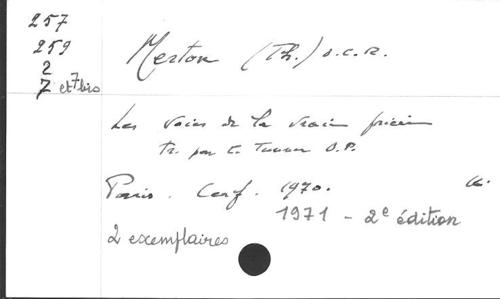 257
259
2
7 et 7 bis
Merton (Th.) o.c.r.
Les voies de la vraie prière
tr. par
O.P.
Paris. Cerf. 1970.
1971 - 2e édition
2 exemplaires